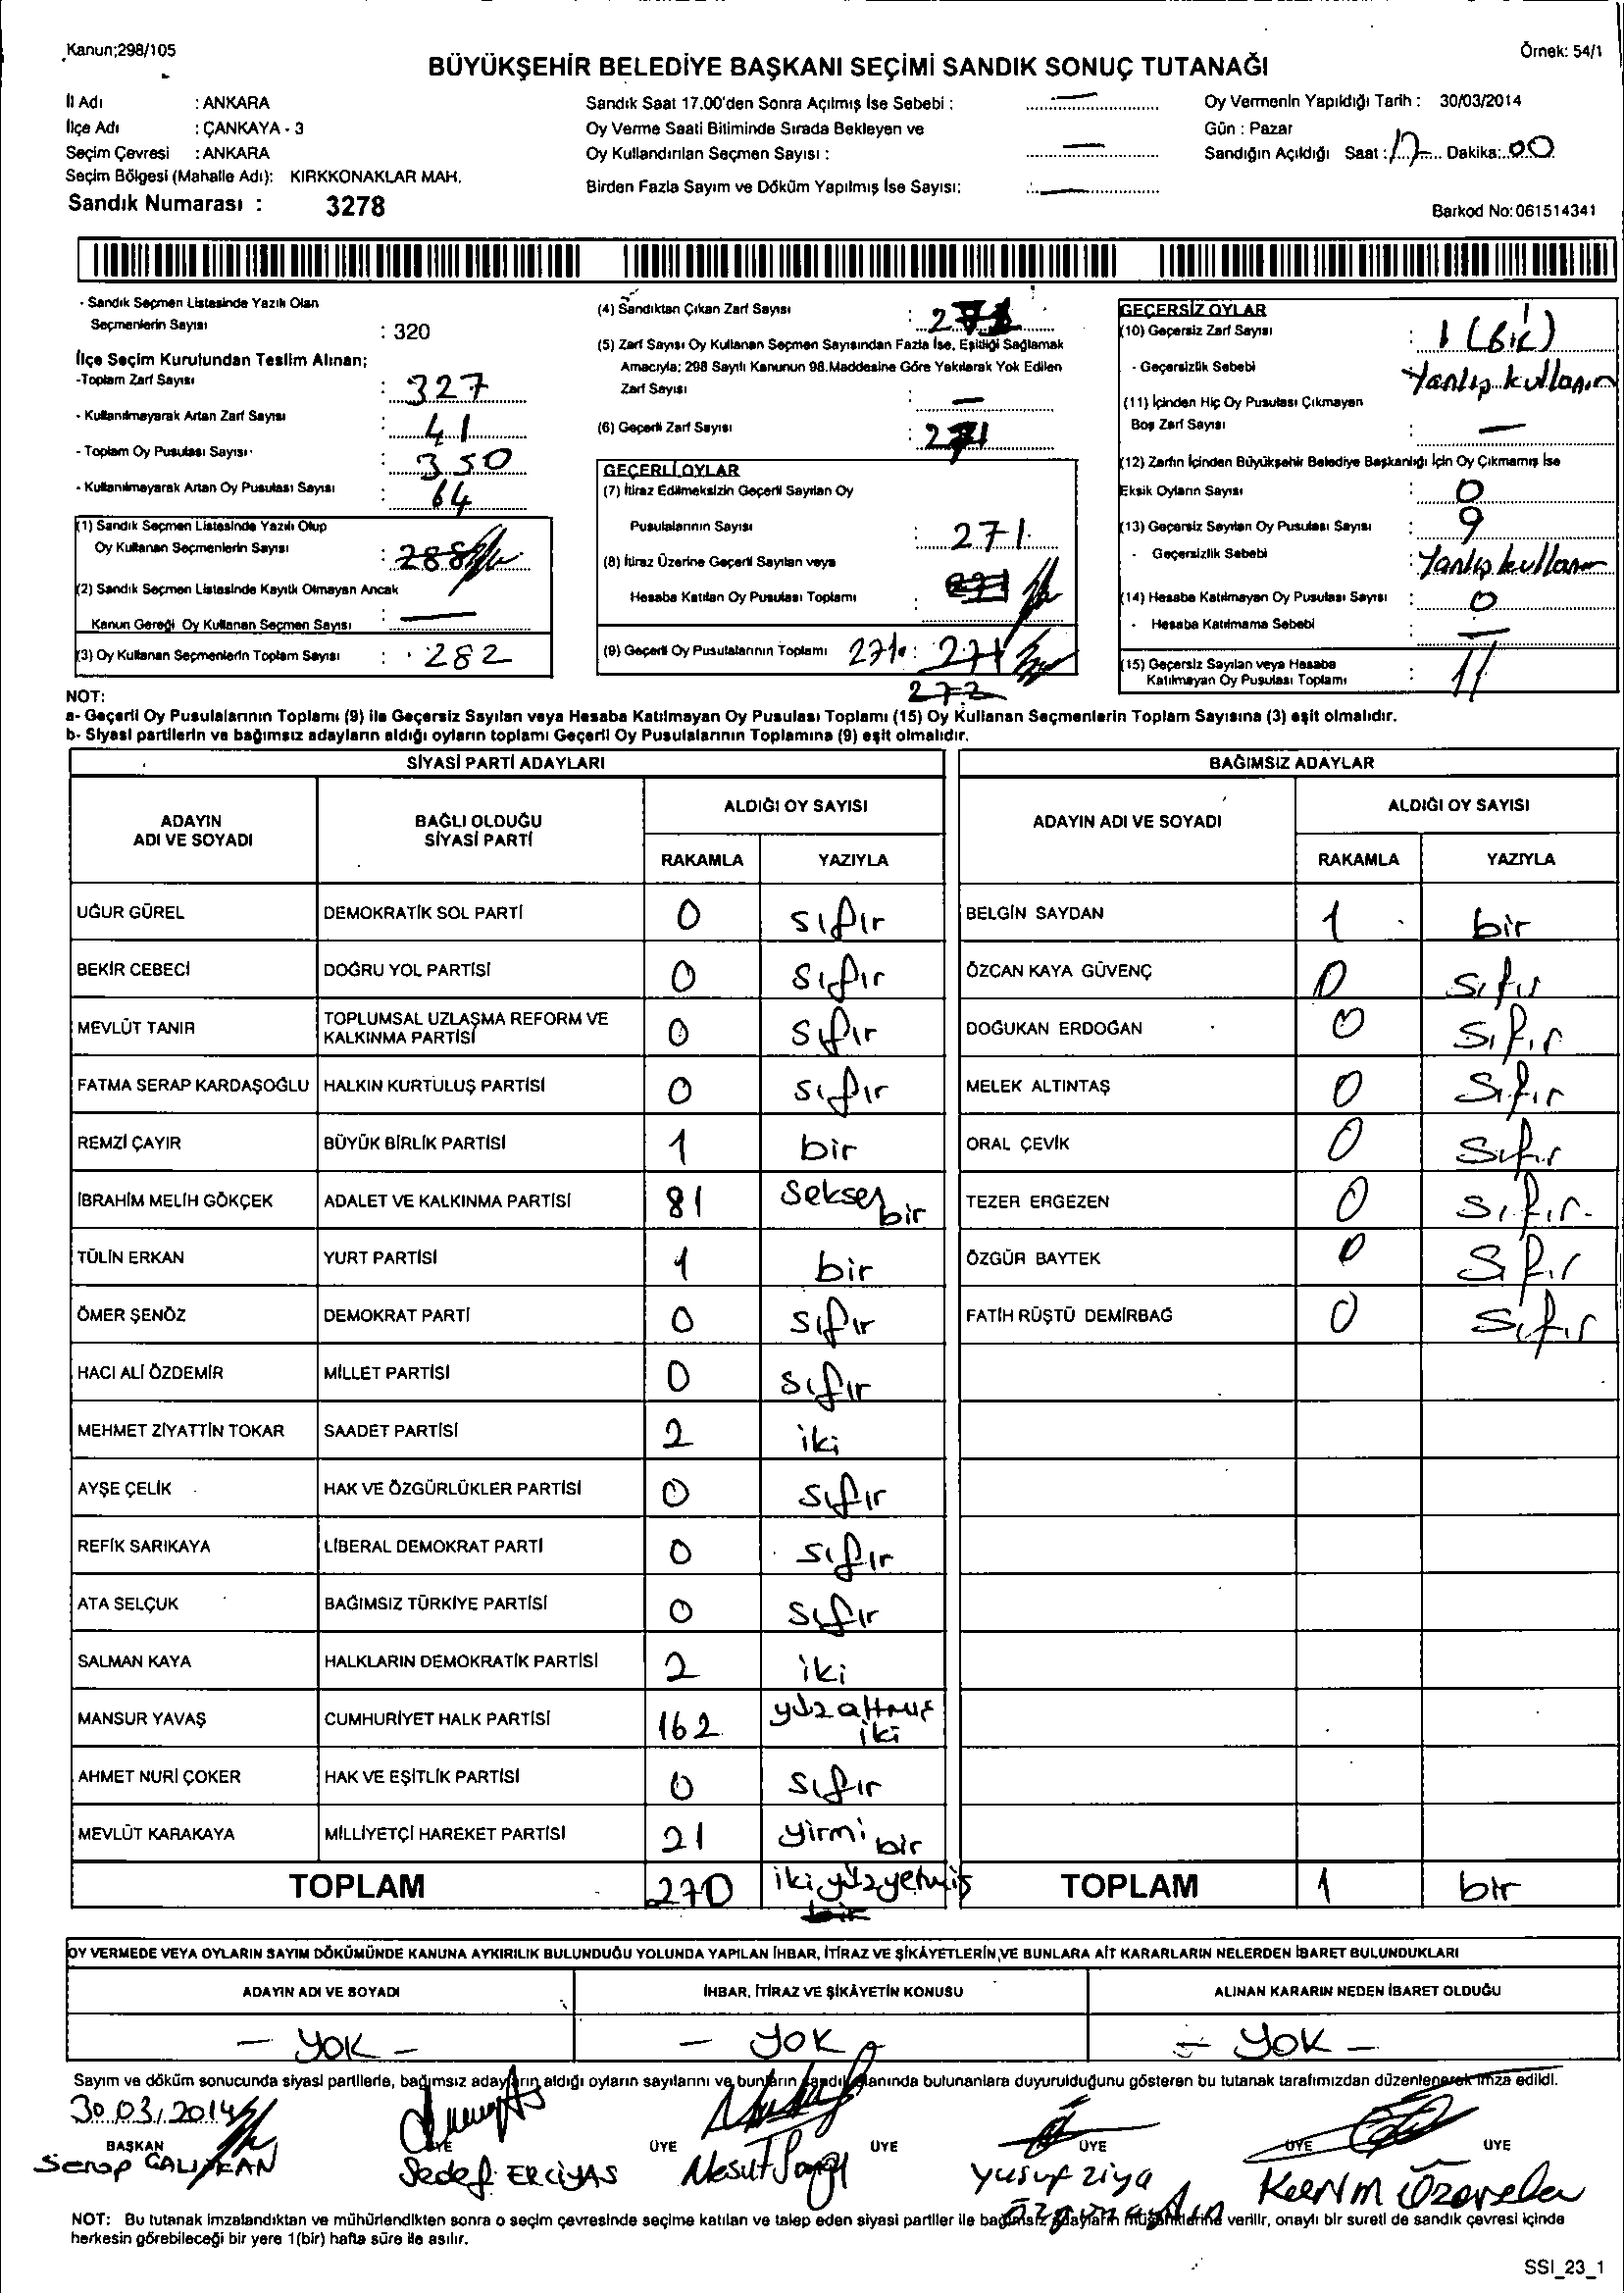 Kanun;298/105
Örnek: 54/1
BÜYÜKŞEHİR BELEDİYE BAŞKANI SEÇİMİ SANDIK SONUÇ TUTANAĞI
İl Adı : ANKARA
İlçe Adı : ÇANKAYA - 3
Seçim Çevresi : ANKARA
Seçim Bölgesi (Mahalle Adı): KIRKKONAKLAR MAH.
Sandık Numarası : 3278
Sandık Saat 17.00'den Sonra Açılmış İse Sebebi : —
Oy Verme Saati Bitiminde Sırada Bekleyen ve
Oy Kullandırılan Seçmen Sayısı : —
Birden Fazla Sayım ve Döküm Yapılmış İse Sayısı: —
Oy Vermenin Yapıldığı Tarih : 30/03/2014
Gün : Pazar
Sandığın Açıldığı Saat : 17 Dakika: 00
Barkod No: 061514341
- Sandık Seçmen Listesinde Yazılı Olan
Seçmenlerin Sayısı : 320
İlçe Seçim Kurulundan Teslim Alınan;
-Toplam Zarf Sayısı : 327
- Kullanılmayarak Artan Zarf Sayısı : 41
- Toplam Oy Pusulası Sayısı : 350
- Kullanılmayarak Artan Oy Pusulası Sayısı : 64
(1) Sandık Seçmen Listesinde Yazılı Olup
Oy Kullanan Seçmenlerin Sayısı : 288
(2) Sandık Seçmen Listesinde Kayıtlı Olmayan Ancak
Kanun Gereği Oy Kullanan Seçmen Sayısı : —
(3) Oy Kullanan Seçmenlerin Toplam Sayısı : 282
(4) Sandıktan Çıkan Zarf Sayısı :
(5) Zarf Sayısı Oy Kullanan Seçmen Sayısından Fazla İse, Eşitliği Sağlamak
Amacıyla; 298 Sayılı Kanunun 98.Maddesine Göre Yakılarak Yok Edilen
Zarf Sayısı : —
(6) Geçerli Zarf Sayısı : 271
GEÇERLİ OYLAR
(7) İtiraz Edilmeksizin Geçerli Sayılan Oy
Pusulalarının Sayısı : 271
(8) İtiraz Üzerine Geçerli Sayılan veya
Hesaba Katılan Oy Pusulası Toplamı :
(9) Geçerli Oy Pusulalarının Toplamı 271 : 271
272
GEÇERSİZ OYLAR
(10) Geçersiz Zarf Sayısı : 1 (bir)
- Geçersizlik Sebebi Yanlış kullanım
(11) İçinden Hiç Oy Pusulası Çıkmayan
Boş Zarf Sayısı : —
(12) Zarfın İçinden Büyükşehir Belediye Başkanlığı İçin Oy Çıkmamış İse
Eksik Oyların Sayısı : 0
(13) Geçersiz Sayılan Oy Pusulası Sayısı : 9
- Geçersizlik Sebebi : Yanlış kullanım
(14) Hesaba Katılmayan Oy Pusulası Sayısı : 0
- Hesaba Katılmama Sebebi : —
(15) Geçersiz Sayılan veya Hesaba
Katılmayan Oy Pusulası Toplamı : 11
NOT:
a- Geçerli Oy Pusulalarının Toplamı (9) ile Geçersiz Sayılan veya Hesaba Katılmayan Oy Pusulası Toplamı (15) Oy Kullanan Seçmenlerin Toplam Sayısına (3) eşit olmalıdır.
b- Siyasi partilerin ve bağımsız adayların aldığı oyların toplamı Geçerli Oy Pusulalarının Toplamına (9) eşit olmalıdır.
SİYASİ PARTİ ADAYLARI
ADAYIN ADI VE SOYADI
BAĞLI OLDUĞU SİYASİ PARTİ
ALDIĞI OY SAYISI
RAKAMLA YAZIYLA
UĞUR GÜREL DEMOKRATİK SOL PARTİ 0 sıfır
BEKİR CEBECİ DOĞRU YOL PARTİSİ 0 sıfır
MEVLÜT TANIR TOPLUMSAL UZLAŞMA REFORM VE KALKINMA PARTİSİ 0 sıfır
FATMA SERAP KARDAŞOĞLU HALKIN KURTULUŞ PARTİSİ 0 sıfır
REMZİ ÇAYIR BÜYÜK BİRLİK PARTİSİ 1 bir
İBRAHİM MELİH GÖKÇEK ADALET VE KALKINMA PARTİSİ 81 Seksen bir
TÜLİN ERKAN YURT PARTİSİ 1 bir
ÖMER ŞENÖZ DEMOKRAT PARTİ 0 sıfır
HACI ALİ ÖZDEMİR MİLLET PARTİSİ 0 sıfır
MEHMET ZİYATTİN TOKAR SAADET PARTİSİ 2 iki
AYŞE ÇELİK HAK VE ÖZGÜRLÜKLER PARTİSİ 0 sıfır
REFİK SARIKAYA LİBERAL DEMOKRAT PARTİ 0 sıfır
ATA SELÇUK BAĞIMSIZ TÜRKİYE PARTİSİ 0 sıfır
SALMAN KAYA HALKLARIN DEMOKRATİK PARTİSİ 2 iki
MANSUR YAVAŞ CUMHURİYET HALK PARTİSİ 162 yüz altmış iki
AHMET NURİ ÇOKER HAK VE EŞİTLİK PARTİSİ 0 sıfır
MEVLÜT KARAKAYA MİLLİYETÇİ HAREKET PARTİSİ 21 yirmi bir
TOPLAM 270 iki yüz yetmiş bir
BAĞIMSIZ ADAYLAR
ADAYIN ADI VE SOYADI
ALDIĞI OY SAYISI
RAKAMLA YAZIYLA
BELGİN SAYDAN 1 bir
ÖZCAN KAYA GÜVENÇ 0 sıfır
DOĞUKAN ERDOĞAN 0 sıfır
MELEK ALTINTAŞ 0 sıfır
ORAL ÇEVİK 0 sıfır
TEZER ERGEZEN 0 sıfır
ÖZGÜR BAYTEK 0 sıfır
FATİH RÜŞTÜ DEMİRBAĞ 0 sıfır
TOPLAM 1 bir
OY VERMEDE VEYA OYLARIN SAYIM DÖKÜMÜNDE KANUNA AYKIRILIK BULUNDUĞU YOLUNDA YAPILAN İHBAR, İTİRAZ VE ŞİKÂYETLERİN,VE BUNLARA AİT KARARLARIN NELERDEN İBARET BULUNDUKLARI
ADAYIN ADI VE SOYADI İHBAR, İTİRAZ VE ŞİKÂYETİN KONUSU ALINAN KARARIN NEDEN İBARET OLDUĞU
— YOK — — YOK — YOK —
Sayım ve döküm sonucunda siyasi partilerle, bağımsız adayların aldığı oyların sayılarını ve bunların sandık alanında bulunanlara duyurulduğunu gösteren bu tutanak tarafımızdan düzenlenerek imza edildi.
30.03.2014
BAŞKAN ÜYE ÜYE ÜYE ÜYE ÜYE ÜYE
Serap ÇALIŞKAN Sedef ERCİYAS Mesut Yusuf Ziya Kerim
NOT: Bu tutanak imzalandıktan ve mühürlendikten sonra o seçim çevresinde seçime katılan ve talep eden siyasi partiler ile bağımsız adayların müşahitlerine verilir, onaylı bir sureti de sandık çevresi içinde
herkesin görebileceği bir yere 1(bir) hafta süre ile asılır.
SSI_23_1